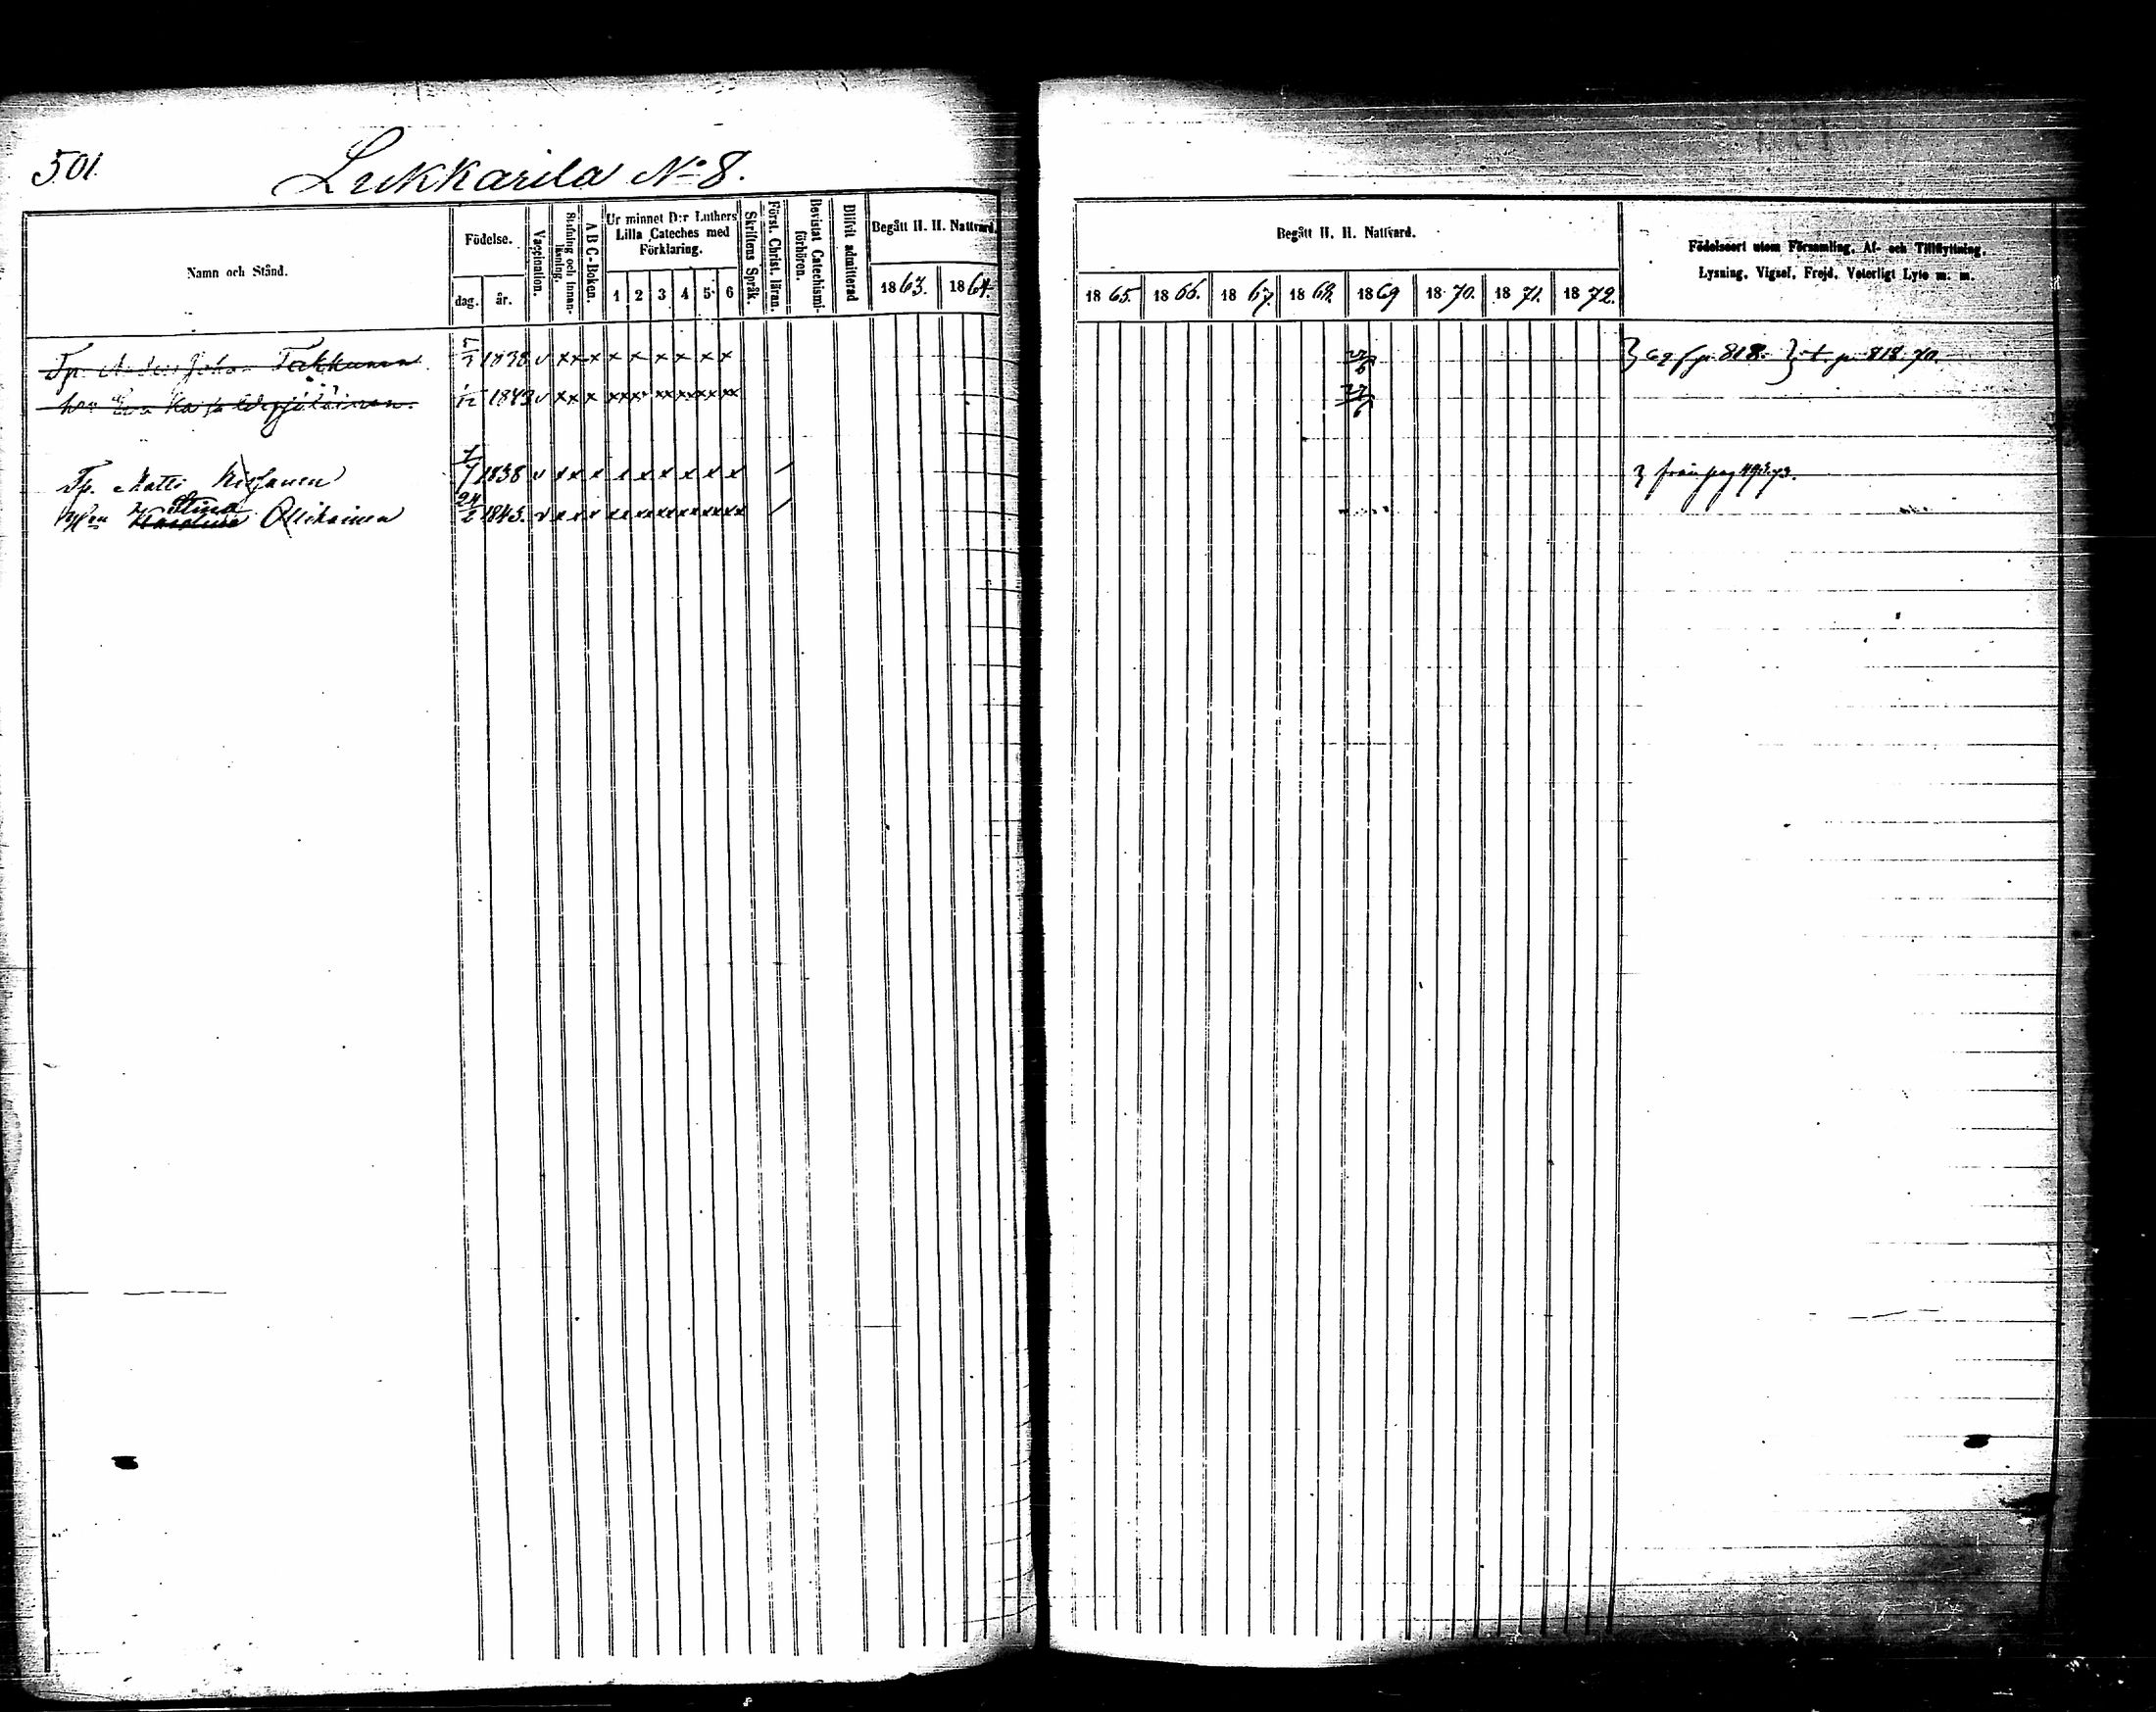 501.
Lukkarila No 8.
Namn och Stånd.
Födelse.
dag.
år.
Vaccination.
Stafning och Innanläsning.
A B C-Boken.
Ur minnet D:r Luthers Lilla Cateches med Förklaring.
1 2 3 4 5 6
Skriftens Språk.
Först. Christ. läran.
Bevistat Catechismiförhören.
Blifvit admitterad
Begått H. H. Nattvard.
1863. 1864.
Begått H. H. Nattvard.
1865. 1866. 1867. 1868. 1869 1870. 1871. 1872.
Födelseort utom Församling, Af- och Tillflyttning,
Lysning, Vigsel, Frejd, Veterligt Lyte m. m.
Tp. Anders Johan Takkunen 1838 v xx x x x x x x x 27/6 } 69 fr p. 818. } t. p. 818. 70.
hu Eva Kaisa 1/12 1843 v xx x xx xx xx xx xx xx 27/6
Tp. Matti 1838 v x x x x x x x x x / } från pag 493. 73.
Hu Karolina Stina Ollikainen 24/2 1843. v x x x xx xx xx xx xx xx /